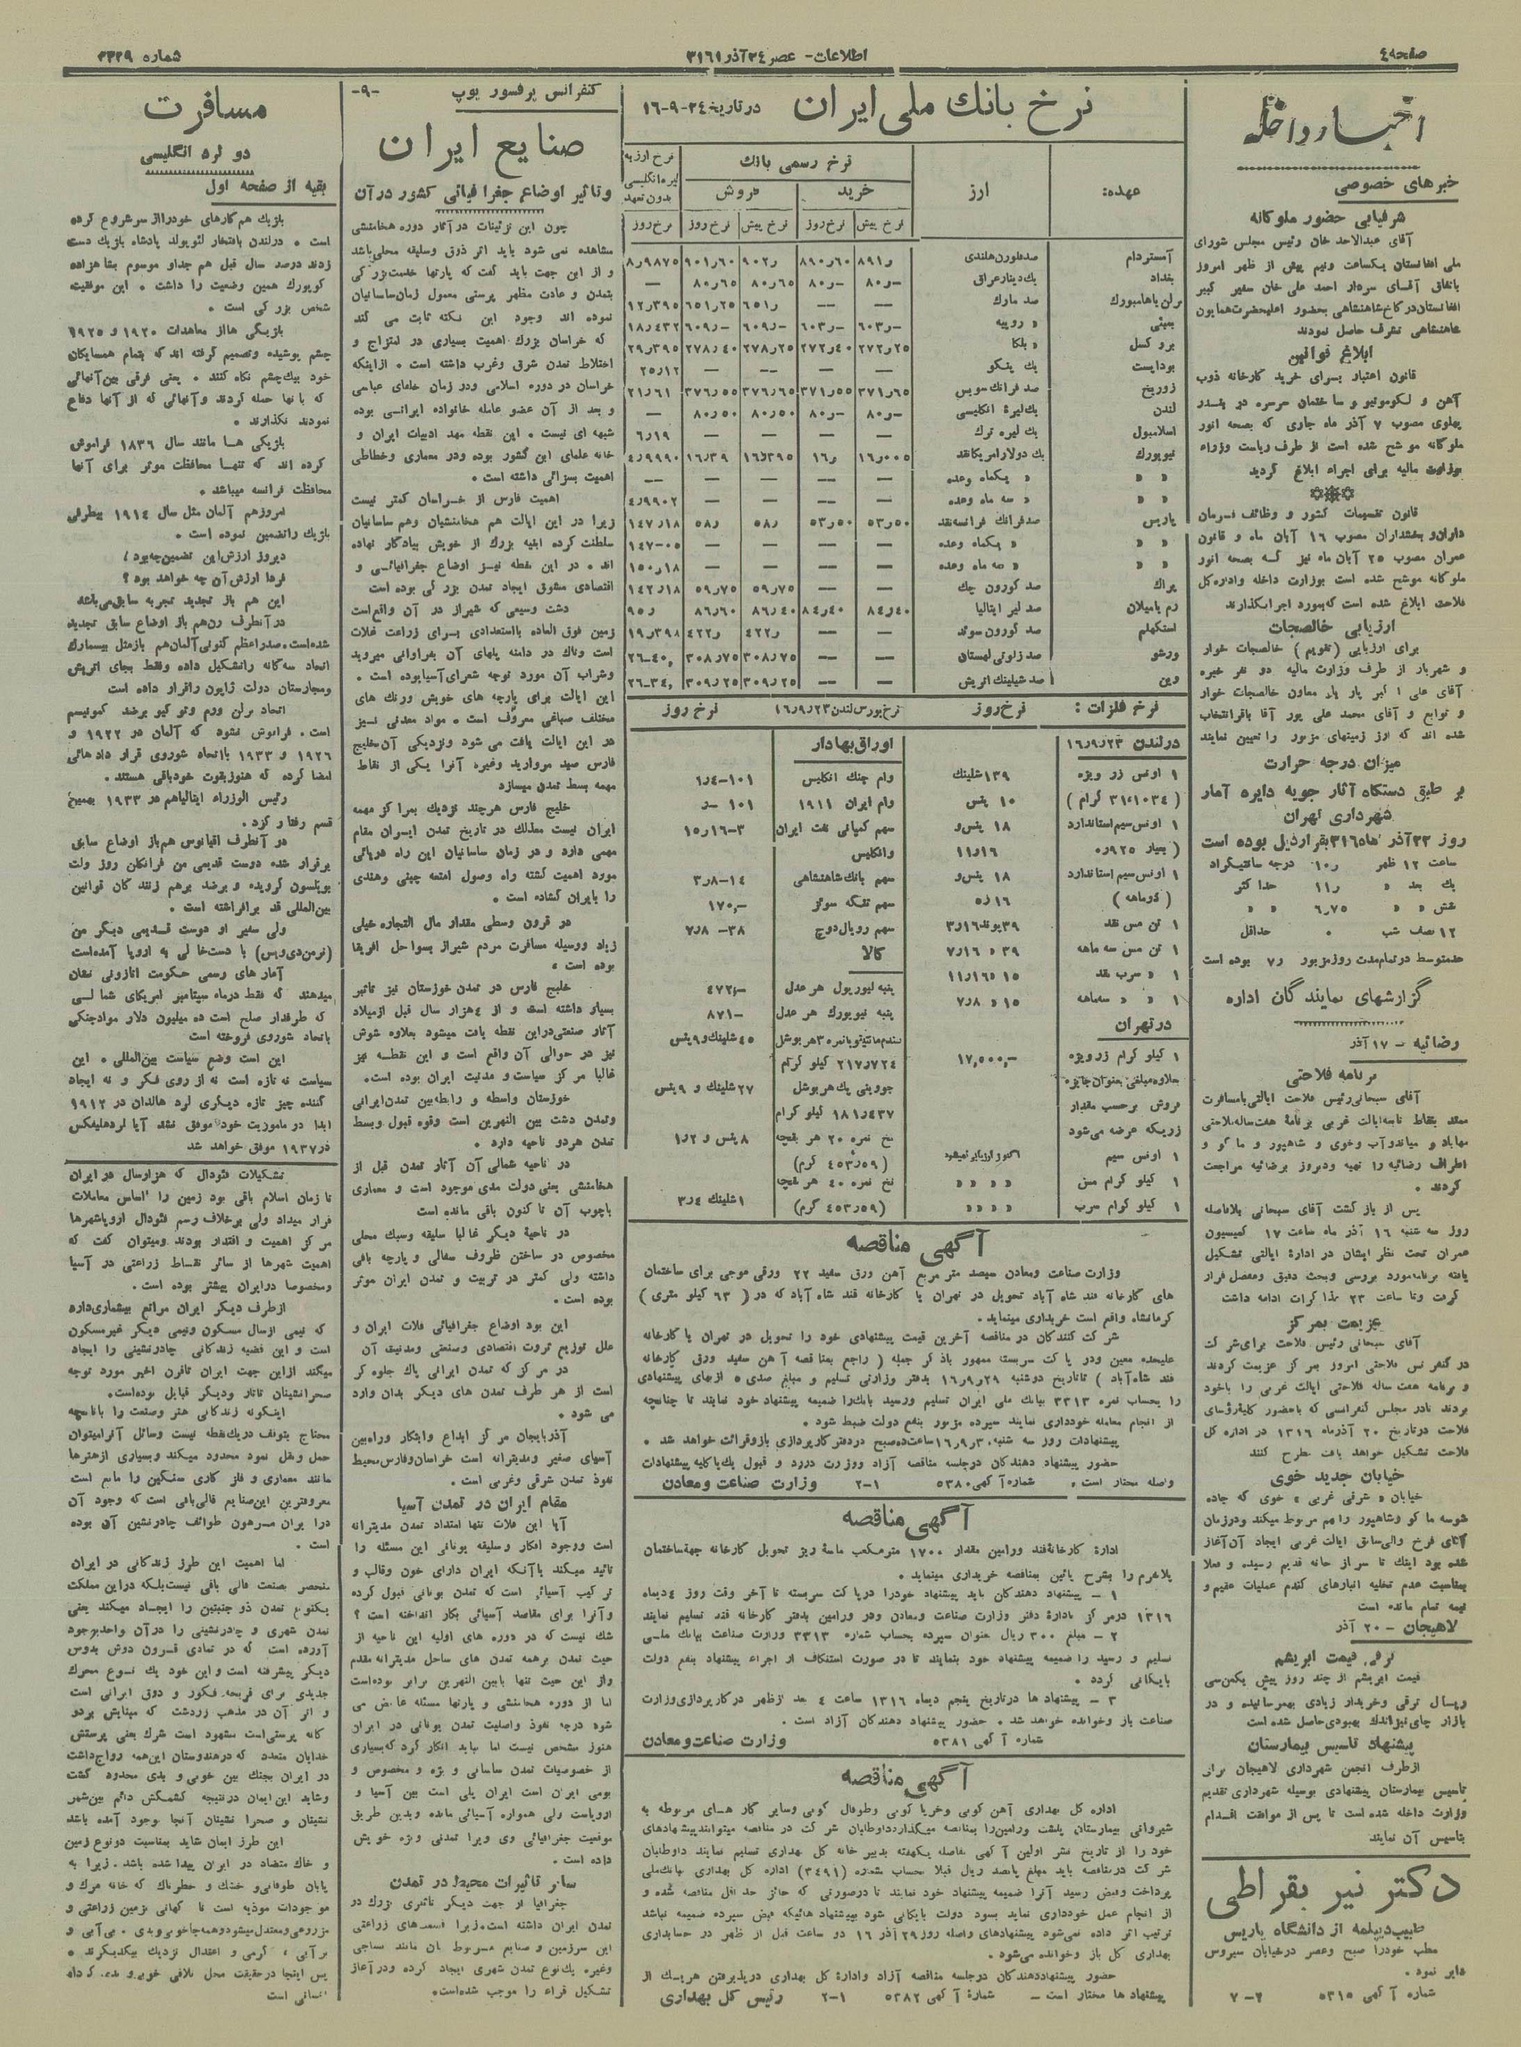 صفحه ٤
اطلاعات - عصر ٢٤ آذر ٣١٦١
شماره ٣٣٢٩
اخبار داخله
خبرهای خصوصی
شرفیابی حضور ملوکانه
آقای عبدالاحد خان رئیس مجلس شورای
ملی افغانستان یکساعت ونیم پیش از ظهر امروز
باتفاق آقای سردار احمد علی خان سفیر کبیر
افغانستان در کاخ شاهنشاهی بحضور اعلیحضرت همایون
شاهنشاهی تشرف حاصل نمودند
ابلاغ قوانین
قانون اعتبار برای خرید کارخانه ذوب
آهن و لکوموتیو و ساختمان سرسره در بندر
پهلوی مصوب ٧ آذر ماه جاری که بصحه انور
ملوکانه موشح شده است از طرف ریاست وزراء
بوزارت مالیه برای اجراء ابلاغ گردید
قانون تقسیمات کشور و وظائف فرمان
داران و بخشداران مصوب ١٦ آبان ماه و قانون
عمران مصوب ٢٥ آبان ماه نیز که بصحه انور
ملوکانه موشح شده است بوزارت داخله واداره کل
فلاحت ابلاغ شده است که بمورد اجرا بگذارند
ارزیابی خالصجات
برای ارزیابی (تقویم) خالصجات خوار
و شهریار از طرف وزارت مالیه دو نفر خبره
آقای علی اکبر یار یار معاون خالصجات خوار
و توابع و آقای محمد علی پور آقا باقر انتخاب
شده اند که ارز زمینهای مزبور را تعیین نمایند
میزان درجه حرارت
بر طبق دستگاه آثار جویه دایره آمار
شهرداری تهران
روز ٢٣ آذر ماه ٣١٦٥ بقرار ذیل بوده است
ساعت ١٢ ظهر ١٠٫ درجه سانتیگراد
یك بعد » ١١٫ حداکثر
شش » » ٦٫٧٥ » »
١٢ نصف شب ٠ حداقل
حدمتوسط در تمام مدت روز مزبور ٧٫ بوده است
گزارشهای نمایندگان اداره
رضائیه - ١٧ آذر
برنامه فلاحتی
آقای سبحانی رئیس فلاحت ایالتی با مسافرت
ممتد بنقاط تابعه ایالت غربی برنامهٔ هفت ساله فلاحتی
مهاباد و میاندوآب وخوی و شاهپور و ماکو و
اطراف رضائیه را تهیه ودیروز برضائیه مراجعت
کردند .
پس از بازگشت آقای سبحانی بلافاصله
روز سه شنبه ١٦ آذر ماه ساعت ١٧ کمیسیون
عمران تحت نظر ایشان در ادارهٔ ایالتی تشکیل
یافته برنامه مورد بررسی وبحث دقیق ومفصل قرار
گرفت وتا ساعت ٢٣ مذاکرات ادامه داشت
عزیمت بمرکز
آقای سبحانی رئیس فلاحت برای شرکت
در کنفرانس فلاحتی امروز بمرکز عزیمت کردند
و برنامه هفت ساله فلاحتی ایالت غربی را باخود
بردند تادر مجلس کنفرانسی که باحضور کلیه رؤسای
فلاحت درتاریخ ٢٠ آذرماه ١٣١٦ در اداره کل
فلاحت تشکیل خواهد یافت مطرح کنند
خیابان جدید خوی
خیابان « شرقی غربی » خوی که جاده
شوسه ماکو وشاهپور را بهم مربوط میکند ودرزمان
آقای فرخ والی سابق ایالت غربی ایجاد آن آغاز
شده بود اینك تا سر از خانه قدیم رسیده و فعلا
بمناسبت عدم تخلیه انبارهای گندم عملیات عقیم و
نیمه تمام مانده است
لاهیجان - ٢٠ آذر
ترقی قیمت ابریشم
قیمت ابریشم از چند روز پیش یکمن سی
ریسال ترقی وخریدار زیادی بهمرسانیده و در
بازار چای نیز اندك بهبودی حاصل شده است
پیشنهاد تاسیس بیمارستان
ازطرف انجمن شهرداری لاهیجان برای
تاسیس بیمارستان پیشنهادی بوسیله شهرداری تقدیم
وزارت داخله شده است تا پس از موافقت اقدام
بتاسیس آن نمایند
دکتر نیر بقراطی
طبیب دیپلمه از دانشگاه پاریس
مطب خودرا صبح وعصر درخیابان سیروس
دایر نمود .
شماره آگهی ٥٣١٥ ٢-٧
نرخ بانك ملی ایران در تاریخ ٢٤-٩-١٦
عهده: ارز نرخ رسمی بانك نرخ ارز به لیره انگلیسی بدون تعهد
خرید فروش
نرخ پیش نرخ روز نرخ پیش نرخ روز نرخ روز
آمستردام صد فلورن هلندی ٨٩١٫ ٨٩٠٫٦٠ ٩٠٢٫ ٩٠١٫٦٠ ٨٫٩٨٧٥
بغداد یك دینار عراق ٨٠٫- ٨٠٫- ٨٠٫٦٥ ٨٠٫٦٥ —
برلن یا هامبورك صد مارك -- -- ٦٥١٫ ٦٥١٫٢٥ ١٢٫٣٩٥
بمبئی » روپیه ٦٠٣٫- ٦٠٣٫- ٦٠٩٫- ٦٠٩٫- ١٨٫٤٣٢
بروکسل » بلگا ٢٧٢٫٢٥ ٢٧٢٫٤٠ ٢٧٨٫٢٥ ٢٧٨٫٤٠ ٢٩٫٣٩٥
بوداپست یك پنگو — — — — ٢٥٫١٢
زوریخ صد فرانك سویس ٣٧١٫٦٥ ٣٧١٫٥٥ ٣٧٦٫٦٥ ٣٧٦٫٥٥ ٢١٫٦١
لندن یك لیرهٔ انگلیسی ٨٠٫- ٨٠٫- ٨٠٫٥٠ ٨٠٫٥٠ —
اسلامبول یك لیره ترك — — — — ٦٫١٩
نیویورك یك دولار امریکا نقد ١٦٫٠٠٥ ١٦٫ ١٦٫٣٩٥ ١٦٫٣٩ ٤٫٩٩٩٠
» » » یکماه وعده -- -- — — --
» » » سه ماه وعده -- -- — — ٤٫٩٩٠٢
پاریس صد فرانك فرانسه نقد ٥٣٫٥٠ ٥٣٫٥٠ ٥٨٫ ٥٨٫ ١٤٧٫١٨
» » » یکماه وعده — — — — ١٤٧-٠٥
» » » سه ماه وعده -- -- — — ١٥٠٫١٨
پراك صد کورون چك — — ٥٩٫٧٥ ٥٩٫٧٥ ١٤٢٫١٨
رم یا میلان صد لیر ایتالیا ٨٤٫٤٠ ٨٤٫٤٠ ٨٦٫٤٠ ٨٦٫٦٠ ٩٥٫
استکهلم صد کورون سوئد -- -- ٤٢٢٫ ٤٢٢٫ ١٩٫٣٩٨
ورشو صد زلوتی لهستان -- -- ٣٠٨٫٧٥ ٣٠٨٫٧٥ ٢٦-٤٠
وین صد شیلینك اتریش -- -- ٣٠٩٫٢٥ ٣٠٩٫٢٥ ٢٦-٣٤
نرخ فلزات : نرخ روز نرخ بورس لندن ١٦٫٩٫٢٣ نرخ روز
در لندن ١٦٫٩٫٢٣
١ اونس زر ویژه ١٣٩ شلینك
(٣١٫١٠٣٤ گرام) ١٠ پنس
١ اونس سیم استاندارد ١٨ پنس و
(بعیار ٠٫٩٢٥) ١١٫١٦
١ اونس سیم استاندارد ١٨ پنس و
(٤ ماهه) ٥٫١٦
١ تن مس نقد ٣٩ پوند ٣٫١٦
١ تن مس سه ماهه ٣٩ » ٧٫١٦
١ » سرب نقد ١٥ » ١١٫١٦
١ » » سه ماهه ١٥ » ٧٫٨
در تهران
١ کیلو گرام زر ویژه ١٧٫٥٠٠٫-
بعلاوه مبلغی بعنوان جایزه
فروش برحسب مقدار
زریکه عرضه می شود
١ اونس سیم اکنون ارزیابی نمیشود
١ کیلو گرام مس » » » »
١ کیلو گرام سرب » » » »
اوراق بهادار
وام جنك انگلیس ١٠١-١٫٤
وام ایران ١٩١١ ١٠١-٫
سهم کمپانی نفت ایران ٣-١٥٫١٦
وانگلیس
سهم بانك شاهنشاهی ١٤-٣٫٨
سهم تنگه سوئز ١٧٠٫-
سهم رویال دوچ ٣٨-٧٫٨
کالا
پنبه لیورپول هر عدل ٤٧٢٫-
پنبه نیویورك هر عدل ٨٧١-
گندم مانیتوبا نمره ٣ هر بوشل ٤٥ شلینك و ٩ پنس
٢١٧٫٧٢٤ کیلو گرام
جو وینی پك هر بوشل ٢٧ شلینك و ٩ پنس
١٨١٫٤٣٧ کیلو گرام
نخ نمره ٢٠ هر بقچه ٨ پنس و ١٫٢
(٤٥٣٫٥٩ گرم)
نخ نمره ٤٠ هر بقچه ١ شلینك ٣٫٤
(٤٥٣٫٥٩ گرم)
آگهی مناقصه
وزارت صناعت و معادن سیصد متر مربع آهن ورق سفید ٢٢ ورقی موجی برای ساختمان
های کارخانه قند شاه آباد تحویل در تهران یا کارخانه قند شاه آباد که در (٦٣ کیلو متری)
کرمانشاه واقع است خریداری مینماید.
شرکت کنندگان در مناقصه آخرین قیمت پیشنهادی خود را تحویل در تهران یا کارخانه
علیحده معین ودر پاکت سربسته ممهور باذکر جمله (راجع بمناقصه آهن سفید ورق کارخانه
قند شاه آباد) تاتاریخ دوشنبه ١٦٫٩٫٢٩ بدفتر وزارتی تسلیم و مبلغ صدی ٥ از بهای پیشنهادی
را بحساب نمره ٣٣١٣ ببانك ملی ایران تسلیم ورسید بانك را ضمیمه پیشنهاد خود نمایند تا چنانچه
از انجام معامله خودداری نمایند سپرده مزبور بنفع دولت ضبط شود .
پیشنهادات روز سه شنبه ١٦٫٩٫٣٠ ساعت ده صبح در دفتر کارپردازی باز وقرائت خواهد شد .
حضور پیشنهاد دهندکان درجلسه مناقصه آزاد ووزارت دررد و قبول یك یا کلیه پیشنهادات
واصله مختار است . شماره آگهی ٥٣٨٠ ١-٢ وزارت صناعت و معادن
آگهی مناقصه
ادارهٔ کارخانهٔ قند ورامین مقدار ١٧٠٠ مترمکعب ماسهٔ ریز تحویل کارخانه جهة ساختمان
پلاخرم را بشرح پائین بمناقصه خریداری مینماید.
١ - پیشنهاد دهندکان باید پیشنهاد خودرا درپاکت سربسته تا آخر وقت روز ٤ دیماه
١٣١٦ درمرکز بادارهٔ دفتر وزارت صناعت ومعادن ودر ورامین بدفتر کارخانه قند تسلیم نمایند
٢ - مبلغ ٣٠٠ ریال بعنوان سپرده بحساب شماره ٣٣١٣ وزارت صناعت ببانك ملی
تسلیم و رسید را ضمیمه پیشنهاد خود بنمایند تا در صورت استنکاف از اجراء پیشنهاد بنفع دولت
بایگانی گردد .
٣ - پیشنهاد ها درتاریخ پنجم دیماه ١٣١٦ ساعت ٤ بعد ازظهر درکارپردازی وزارت
صناعت باز وخوانده خواهد شد . حضور پیشنهاد دهندکان آزاد است .
شماره آگهی ٥٣٨١ وزارت صناعت و معادن
آگهی مناقصه
اداره کل بهداری آهن کوبی وخرپا کوبی وطوفال کوبی وسایر کار های مربوطه به
شیروانی بیمارستان پلشت ورامین را بمناقصه میگذارد داوطلبان شرکت در مناقصه میتوانند پیشنهادهای
خود را از تاریخ نشر اولین آگهی بفاصله یکهفته بدبیر خانه کل بهداری تسلیم نمایند داوطلبان
شرکت درمناقصه باید مبلغ پانصد ریال قبلا بحساب شماره (٣٤٩١) اداره کل بهداری ببانك ملی
پرداخت وقبض رسید آنرا ضمیمه پیشنهاد خود نمایند تا درصورتی که حائز حداقل مناقصه شده و
از انجام عمل خودداری نماید بسود دولت بایگانی شود بپیشنهاد هائیکه قبض سپرده ضمیمه نباشد
ترتیب اثر داده نمی شود پیشنهادهای واصله روز ٢٩ آذر ١٦ دو ساعت قبل از ظهر در حسابداری
بهداری کل باز وخوانده می شود.
حضور پیشنهاددهندکان درجلسه مناقصه آزاد وادارهٔ کل بهداری درپذیرفتن هریك از
پیشنهاد ها مختار است - شمارهٔ آگهی ٥٣٨٢ ١-٢ رئیس کل بهداری
کنفرانس پرفسور پوپ -٩-
صنایع ایران
وتاثیر اوضاع جغرافیائی کشور در آن
چون این تزئینات در آثار دوره هخامنشی
مشاهده نمی شود باید اثر ذوق وسلیقه محلی باشد
و از این جهت باید گفت که پارتها خدمت بزرگی
بتمدن و عادت مظهر پرستی معمول زمان ساسانیان
نموده اند وجود این نکته ثابت می کند
که خراسان بزرك اهمیت بسیاری در امتزاج و
اختلاط تمدن شرق وغرب داشته است . ازاینکه
خراسان در دوره اسلامی ودر زمان خلفای عباسی
و بعد از آن عضو عامله خانواده ایرانی بوده
شبهه ای نیست . این نقطه مهد ادبیات ایران و
خانه علمای این کشور بوده ودر معماری وخطاطی
اهمیت بسزائی داشته است .
اهمیت فارس از خراسان کمتر نیست
زیرا در این ایالت هم هخامنشیان وهم ساسانیان
سلطنت کرده ابنیه بزرك از خویش بیادگار نهاده
اند . در این نقطه نیز اوضاع جغرافیائی و
اقتصادی مشوق ایجاد تمدن بزرگی بوده است
دشت وسیعی که شیراز در آن واقع است
زمین فوق العاده بااستعدادی برای زراعت غلات
است وتاك در دامنه پلهای آن بفراوانی میروید
وشراب آن مورد توجه شعرای آسیا بوده است .
این ایالت برای پارچه های خویش ورنك های
مختلف صباغی معروف است . مواد معدنی نیز
در این ایالت یافت می شود ونزدیکی آن بخلیج
فارس صید مروارید وغیره آنرا یکی از نقاط
مهمه بسط تمدن میسازد
خلیج فارس هرچند نزدیك بمراکز مهمه
ایران نیست معذلك در تاریخ تمدن ایران مقام
مهمی دارد و در زمان ساسانیان این راه دریائی
مورد اهمیت گشته راه وصول امتعه چینی وهندی
را بایران گشاده است .
در قرون وسطی مقدار مال التجاره خیلی
زیاد ووسیله مسافرت مردم شیراز بسواحل افریقا
بوده است .
خلیج فارس در تمدن خوزستان نیز تاثیر
بسیار داشته است و از ٤ هزار سال قبل ازمیلاد
آثار صنعتی دراین نقطه یافت میشود بعلاوه شوش
نیز در حوالی آن واقع است و این نقطه نیز
غالبا مرکز سیاست و مدنیت ایران بوده است.
خوزستان واسطه و رابطه بین تمدن ایرانی
وتمدن دشت بین النهرین است وقوه قبول وبسط
تمدن هردو ناحیه دارد .
در ناحیه شمالی آن آثار تمدن قبل از
هخامنشی یعنی دولت مدی موجود است و معماری
باچوب آن تا کنون باقی مانده است
در ناحیهٔ دیگر غالبا سلیقه وسبك محلی
مخصوص در ساختن ظروف سفالی و پارچه بافی
داشته ولی کمتر در تربیت و تمدن ایران موثر
بوده است .
این بود اوضاع جغرافیائی فلات ایران و
علل توزیع ثروت اقتصادی وصنعتی ومدنیت آن
در مرکز که تمدن ایرانی پاك جلوه گر
است از هر طرف تمدن های دیگر بدان وارد
می شود .
آذربایجان مرکز ابداع وابتکار وراه بین
آسیای صغیر ومدیترانه است خراسان وفارس محیط
نفوذ تمدن شرقی وغربی است .
مقام ایران در تمدن آسیا
آیا این فلات تنها امتداد تمدن مدیترانه
است ووجود افکار وسلیقه یونانی این مسئله را
تائید میکند یا آنکه ایران دارای خون وقالب و
ترکیب آسیائی است که تمدن یونانی قبول کرده
وآنرا برای مقاصد آسیائی بکار انداخته است ؟
شك نیست که در دوره های اولیه این ناحیه از
حیث تمدن برهمه تمدن های ساحل مدیترانه مقدم
واز این حیث تنها با بین النهرین برابر بوده است
اما از دوره هخامنشی و پارتها مسئله غامض می
شود درجه نفوذ واصلیت تمدن یونانی در ایران
هنوز مشخص نیست اما نباید انکار کرد که بسیاری
از خصوصیات تمدن ساسانی ویژه و مخصوص و
بومی ایران است ایران پلی است بین آسیا و
اروپاست ولی همواره آسیائی مانده وبدین طریق
موقعیت جغرافیائی وی ویرا تمدنی ویژه خویش
داده است .
سایر تاثیرات محیط در تمدن
جغرافیا از جهت دیگر تاثیری بزرك در
تمدن ایران داشته است. زیرا قسمت های زراعتی
این سرزمین و صنایع مربوط بان مانند نساجی
وغیره یك نوع تمدن شهری ایجاد کرده ودر آغاز
تشکیل قراء را موجب شده است.
مسافرت
دو لرد انگلیسی
بقیه از صفحه اول
بلژیك هم کارهای خودرا از سر شروع کرده
است . درلندن بافتخار لئوپولد پادشاه بلژیك دست
زدند درصد سال قبل هم جداو موسوم بشاهزاده
کوبورك همین وضعیت را داشت . این موفقیت
شخص بزرگی است .
بلژیکی ها از معاهدات ١٩٢٠ و ١٩٢٥
چشم پوشیده وتصمیم گرفته اند که بتمام همسایکان
خود بیك چشم نگاه کنند . یعنی فرقی بین آنهائی
که بانها حمله کردند وآنهائی که از آنها دفاع
نمودند نگذارند .
بلژیکی ها مانند سال ١٨٣٦ فراموش
کرده اند که تنها محافظت موثر برای آنها
محافظت فرانسه میباشد .
امروزهم آلمان مثل سال ١٩١٤ بیطرفی
بلژیك راتضمین نموده است .
دیروز ارزش این تضمین چه بود ؟
فردا ارزش آن چه خواهد بود ؟
این هم باز تجدید تجربه سابق می باشد
در آنطرف رن هم باز اوضاع سابق تجدید
شده است. صدراعظم کنونی آلمان هم بازمثل بیسمارك
اتحاد سه گانه راتشکیل داده وفقط بجای اتریش
ومجارستان دولت ژاپون راقرار داده است
اتحاد برلن ورم وتوکیو برضد کمونیسم
است . فراموش نشود که آلمان در ١٩٢٢ و
١٩٢٦ و ١٩٣٣ با اتحاد شوروی قرار دادهائی
امضا کرده که هنوز بقوت خود باقی هستند .
رئیس الوزراء ایتالیا هم در ١٩٣٣ بهمین
قسم رفتار کرد .
در آنطرف اقیانوس هم باز اوضاع سابق
برقرار شده دوست قدیمی من فرانکلن روز ولت
بویلسون گرویده و برضد برهم زنند گان قوانین
بین المللی قد برافراشته است .
ولی سفیر او دوست قدیمی دیگر من
(نرمن دیویس) با دست خالی به اروپا آمده است
آمار های رسمی حکومت اتازونی نشان
میدهند که فقط درماه سپتامبر امریکای شمالی
که طرفدار صلح است ده میلیون دلار موادجنگی
باتحاد شوروی فروخته است
این است وضع سیاست بین المللی . این
سیاست نه تازه است نه از روی فکر و نه ایجاد
کننده چیز تازه دیگری لرد هالدان در ١٩١٢
ابدا در ماموریت خود موفق نشد آیا لرد هلیفکس
در ١٩٣٧ موفق خواهد شد
تشکیلات فئودال که هزارسال در ایران
تا زمان اسلام باقی بود زمین را اساس معاملات
قرار میداد ولی برخلاف رسم فئودال اروپا شهرها
مرکز اهمیت و اقتدار بودند ومیتوان گفت که
اهمیت شهرها از سائر نقاط زراعتی در آسیا
ومخصوصا درایران بیشتر بوده است .
ازطرف دیگر ایران مراتع بیشماری داره
که نیمی ازسال مسکون ونیمی دیگر غیرمسکون
است و این قضیه زندگانی چادرنشینی را ایجاد
میکند ازاین جهت ایران تاقرن اخیر مورد توجه
صحرانشینان تاتار ودیگر قبایل بوده است.
اینگونه زندگانی هنر وصنعت را باآنچه
محتاج بتوقف دریك نقطه نیست وسائل آنرا میتوان
حمل ونقل نمود محدود میکند وبسیاری ازهنرها
مانند معماری و فلز کاری سنگین را مانع است
معروفترین این صنایع قالی بافی است که وجود آن
در ایران مرهون طوائف چادرنشین آن بوده
است .
اما اهمیت این طرز زندگانی در ایران
منحصر بصنعت قالی بافی نیست بلکه دراین مملکت
یکنوع تمدن ذو جنبتین را ایجاد میکند یعنی
تمدن شهری و چادرنشینی را درآن واحد بوجود
آورده است که در تمادی قرون دوش بدوش
دیگر پیشرفته است و این خود یك نوع محرك
جدیدی برای قریحه فکور و ذوق ایرانی است
و اثر آن در مذهب زردشت که مبنایش بردو
گانه پرستی است مشهود است شرك یعنی پرستش
خدایان متعدد که درهندوستان این همه رواج داشت
در ایران بجنك بین خوبی و بدی محدود گشت
وشاید این ایمان درنتیجه کشمکش دائم بین شهر
نشینان و صحرا نشینان آنجا بوجود آمده باشد
این طرز ایمان شاید بمناسبت دونوع زمین
و خاك متضاد در ایران پیدا شده باشد. زیرا به
یابان طوفانی و خشك و خطرناك که خانه مرك و
موجودات موذیه است نا گهانی بزمین زراعتی و
مزروعی ومعتدل میشود وهمه جا خوبی وبدی . بی آبی و
پر آبی ، گرمی و اعتدال نزدیك بیکدیگرند .
پس اینجا درحقیقت محل تلافی خوبی و بدی کردار
انسانی است